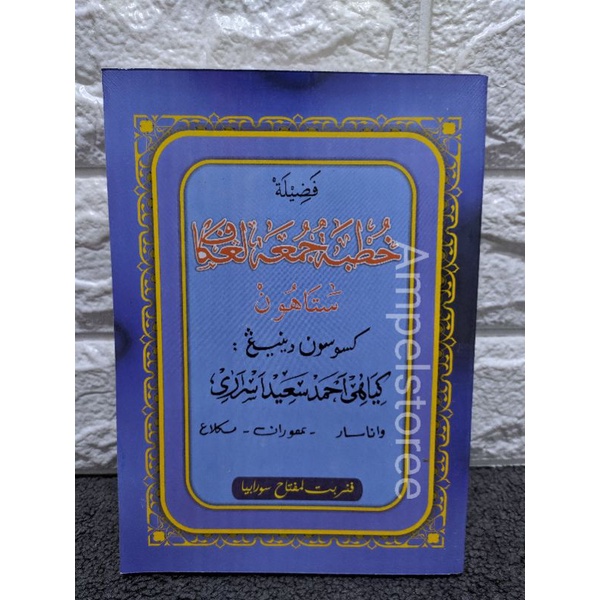 فَضِيْلَةْ
خُطْبَةْ جُمْعَةْ لعكاف
ستاهون
كسوسون دينيڠ :
كياهى احمد سعيد اسراري
واناسار - تمفوران - مكلاڠ
فنربت لمفتاح سورابيا
Ampelstoree